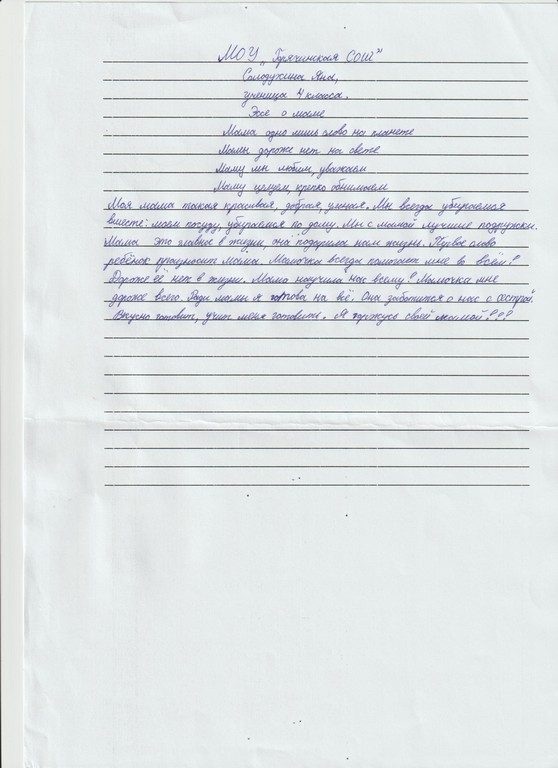 МОУ „Горячинская СОШ"
Солодухина Яна,
ученица 4 класса.
Эссе о маме
Мама одно лишь слово на планете
Мамы дороже нет на свете
Маму мы любим, уважаем
Маму целуем, крепко обнимаем
Моя мама такая красивая, добрая, умная. Мы всегда убираемся
вместе: моем посуду, убираемся по дому. Мы с мамой лучшие подружки.
Мама это главное в жизни, она подарила нам жизнь. Первое слово
ребёнок произносит мама. Мамочка всегда помогает мне во всём!
Дороже её нет в жизни. Мама научила нас всему! Мамочка мне
дороже всего. Ради мамы я готова на всё. Она заботится о нас с сестрой.
Вкусно готовит, учит меня готовить. Я горжусь своей мамой!!!